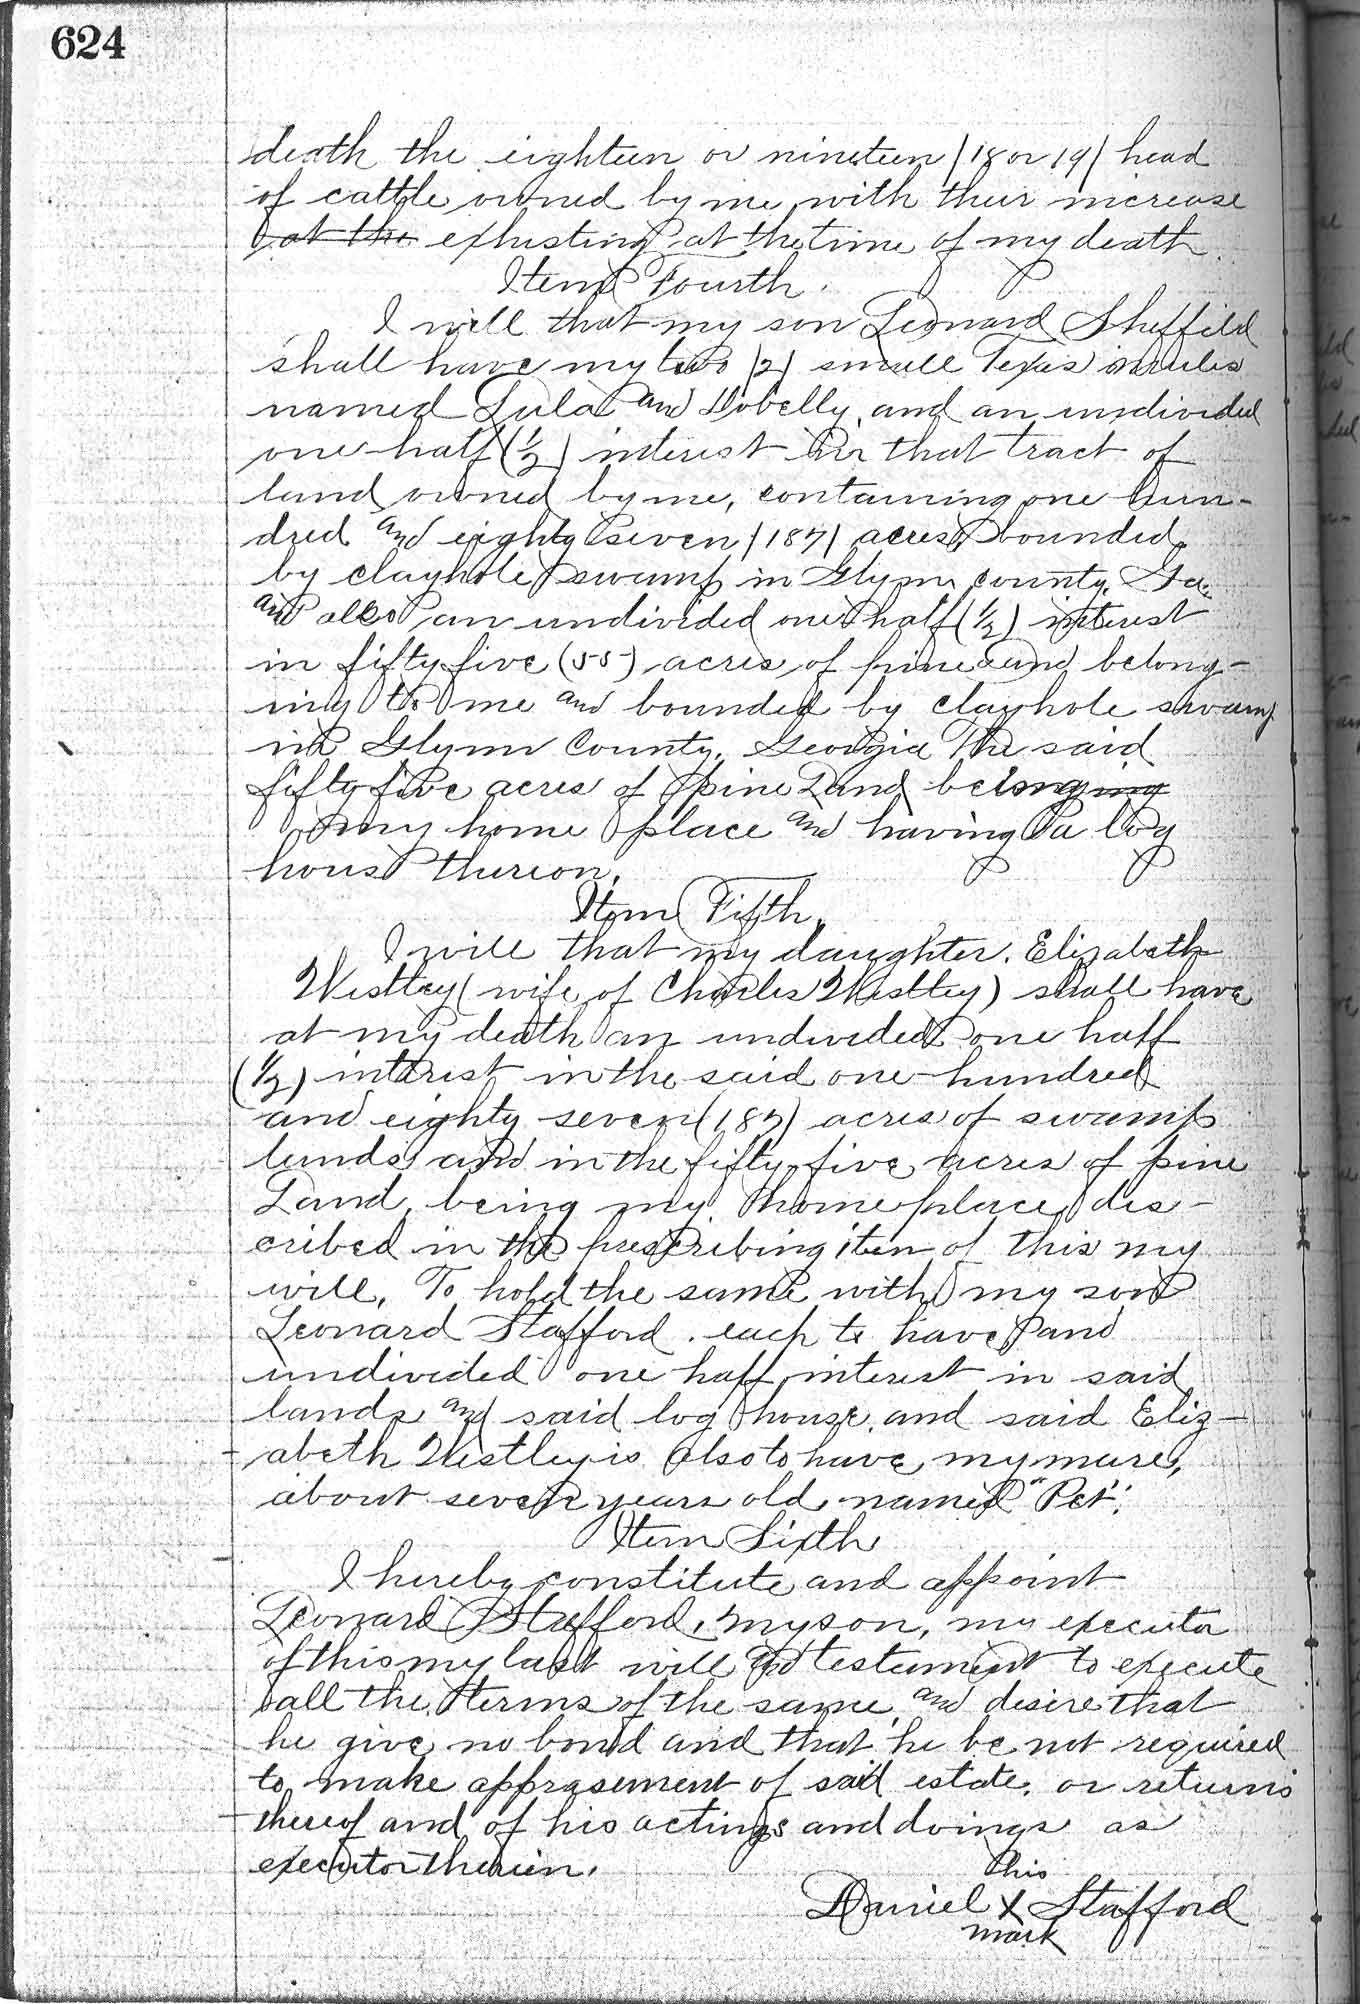 624
death the eighteen or nineteen /18 or 19/ head
of cattle owned by me with their increase
at the exhisting at the time of my death
Item Fourth.
I will that my son Leonard Sheffild
shall have my two /2/ small Texas mules
named Lula and Dobelly, and an undivided
one half (1/2) interest in that tract of
land owned by me, containing one hun-
dred and eighty seven /187/ acres, bounded
by clayhole swamp in Glynn County, Ga.
and also an undivided one half (1/2) interest
in fifty five (55) acres of pine land belong-
ing to me and bounded by clayhole swamp
in Glynn County, Georgia The said
fifty five acres of pine Land belonging
my home place and having a log
hous thereon.
Item Fifth.
I will that my daughter, Elizabeth
Westley (wife of Charles Westley) shall have
at my death an undivided one half
(1/2) interest in the said one hundred
and eighty seven (187) acres of swamp
lands and in the fifty-five acres of pine
Land, being my home place, des-
cribed in the prescribing item of this my
will, To hold the same with my son
Leonard Stafford. each to have, and
undivided one half interest in said
lands and said log house, and said Eliz-
abeth Westley is also to have my mare,
about seven years old, named "Pet".
Item Sixth
I hereby constitute and appoint
Leonard Stafford, my son, my executor
of this my last will and testament to execute
all the terms of the same, and desire that
he give no bond and that he be not required
to make apprasement of said estate, or returns
thereof and of his actings and doings as
executor therein.
his
Daniel X Stafford
mark